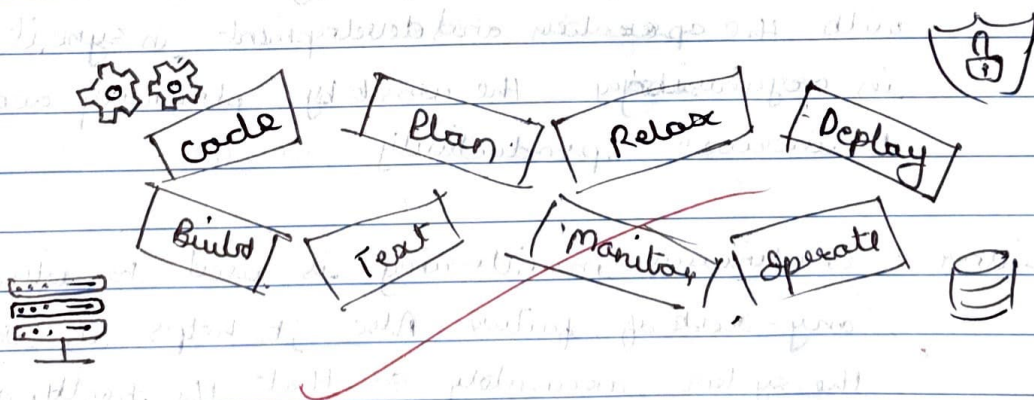 Code Plan Relax Deploy
Build Test Monitor Operate